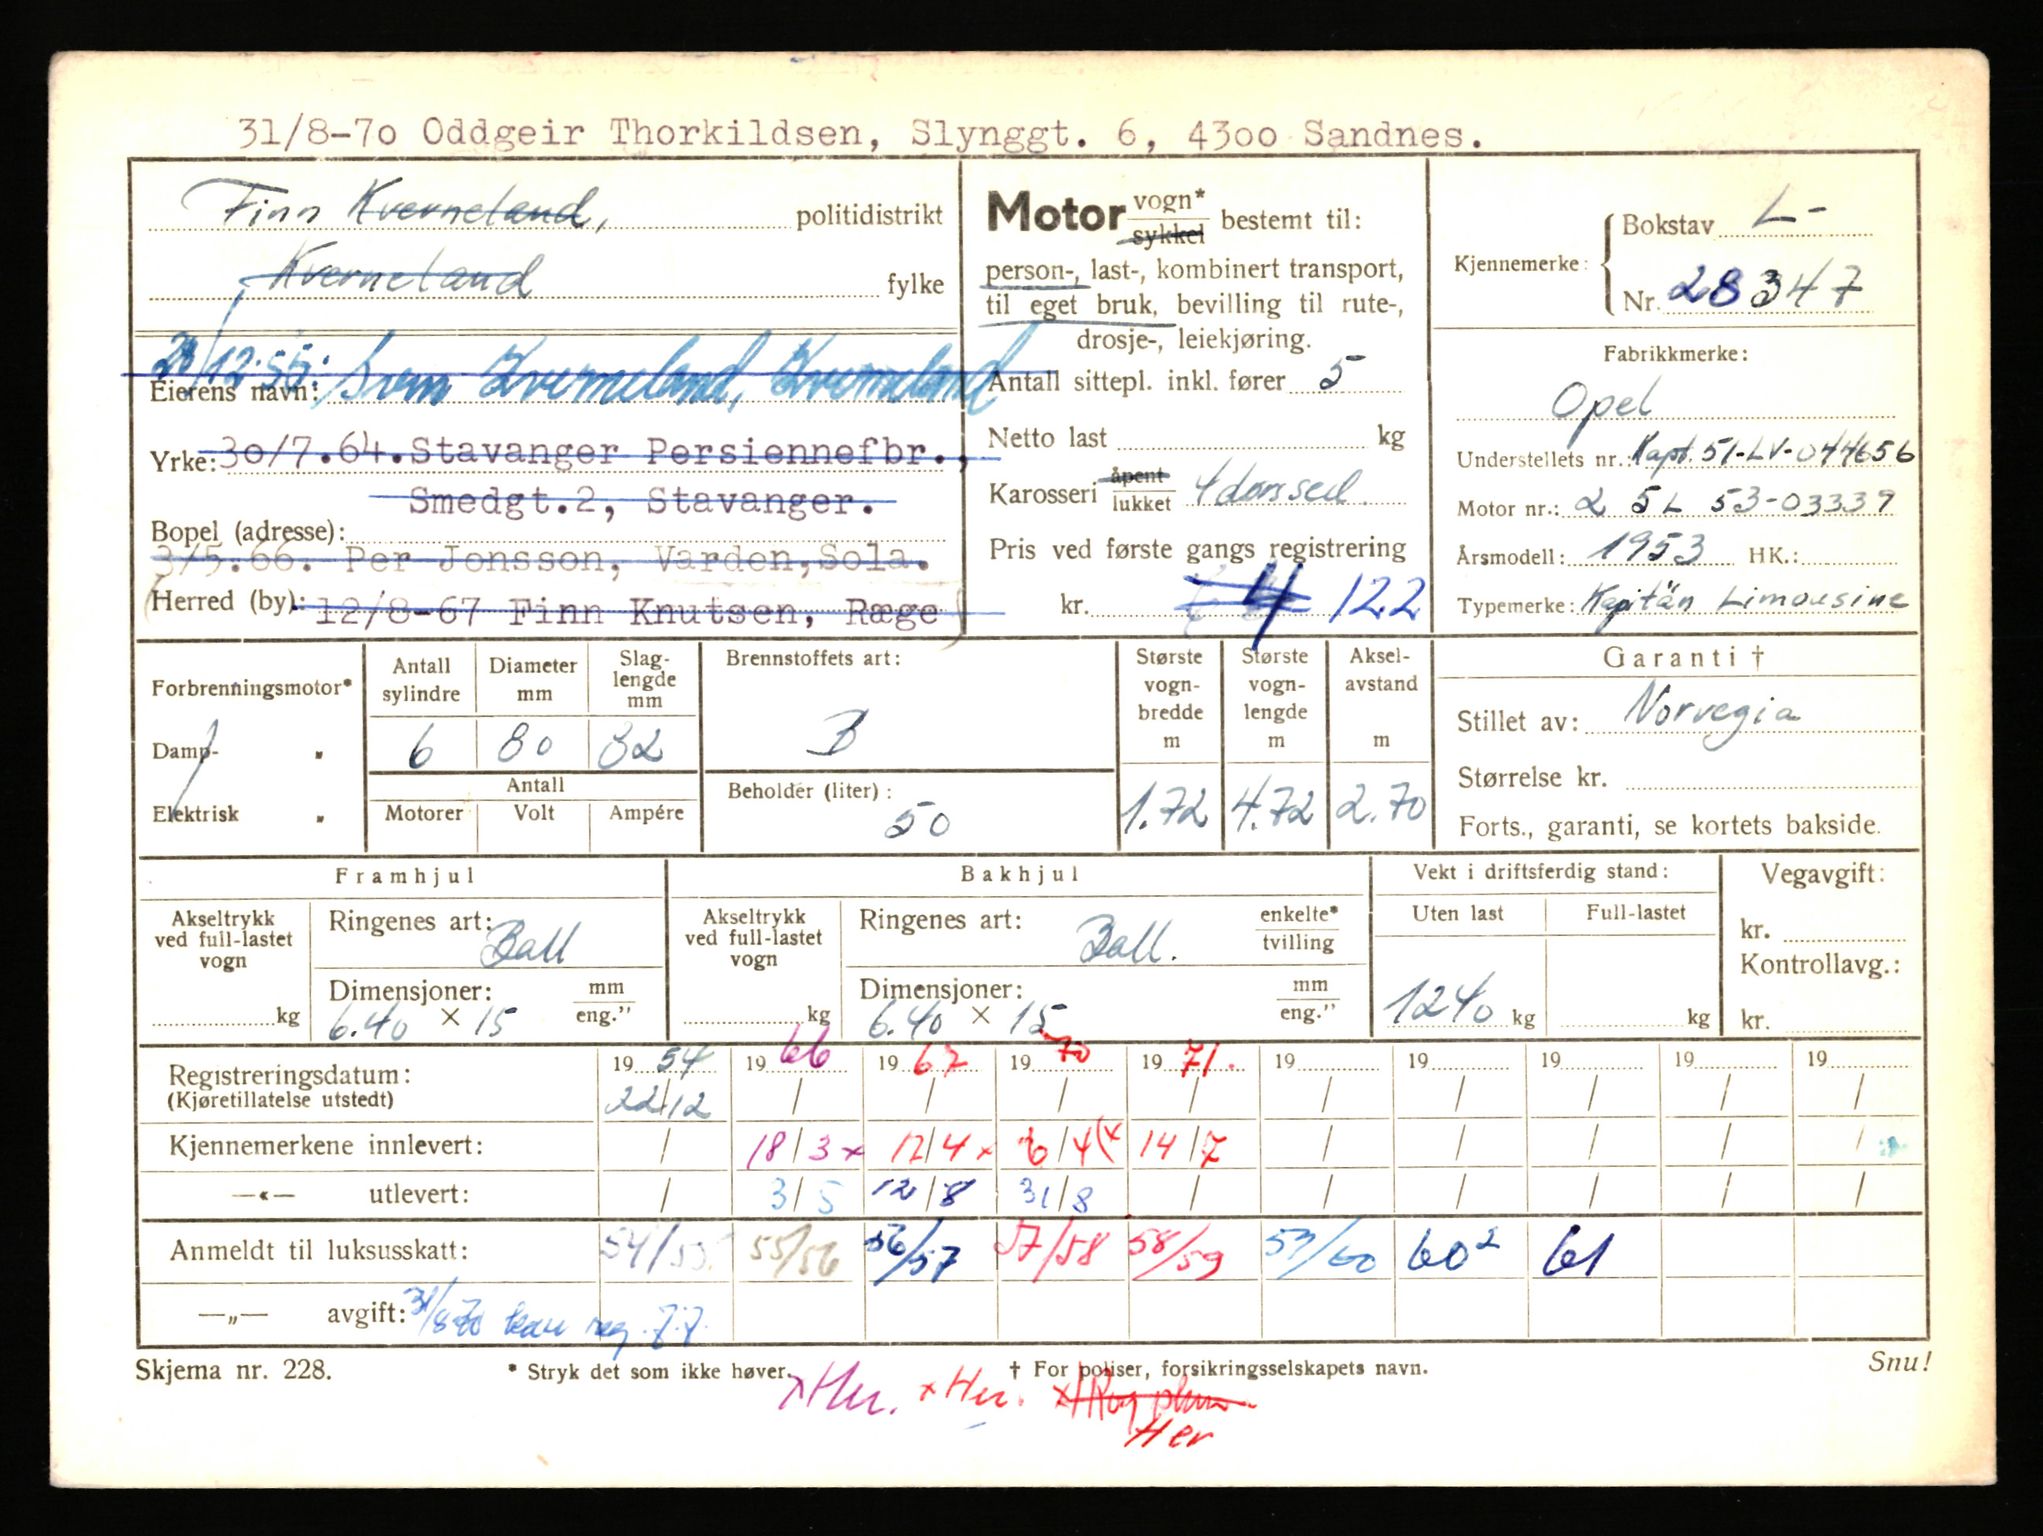 31/8-70 Oddgeir Thorkildsen, Slynggt. 6, 4300 Sandnes.
Finn Kverneland, politidistrikt
Kverneland fylke
Eierens navn: 28/12-55: Svein Kverneland, Kverneland
Yrke: 30/7.64. Stavanger Persiennefbr.,
Smedgt.2, Stavanger.
Bopel (adresse):
3/5.66. Per Jonsson, Varden, Sola.
Herred (by): 12/8-67 Finn Knutsen, Ræge
Motor vogn* sykkel bestemt til:
person-, last-, kombinert transport,
til eget bruk, bevilling til rute-,
drosje-, leiekjøring.
Antall sittepl. inkl. fører 5
Netto last kg
Karosseri åpent lukket 4 dørs sed.
Pris ved første gangs registrering
kr. 4 122
Kjennemerke: Bokstav L-
Nr. 28347
Fabrikkmerke:
Opel
Understellets nr.: Kapt. 51-LV-044656
Motor nr.: 2 5 L 53-03339
Årsmodell: 1953 HK.:
Typemerke: Kapitän Limousine
Forbrenningsmotor*
Damp- "
Elektrisk "
Antall sylindre Diameter mm Slag-lengde mm
6 80 82
Antall
Motorer Volt Ampére
Brennstoffets art:
B
Beholder (liter):
50
Største vogn-bredde m Største vogn-lengde m Aksel-avstand m
1.72 4.72 2.70
Garanti †
Stillet av: Norvegia
Størrelse kr.
Forts., garanti, se kortets bakside.
Framhjul
Akseltrykk ved full-lastet vogn
kg
Ringenes art: Ball
Dimensjoner: mm eng."
6.40 × 15
Bakhjul
Akseltrykk ved full-lastet vogn
kg
Ringenes art: Ball. enkelte* tvilling
Dimensjoner: mm eng."
6.40 × 15
Vekt i driftsferdig stand:
Uten last Full-lastet
1240 kg kg
Vegavgift:
kr.
Kontrollavg.:
kr.
19 54 19 66 19 67 19 70 19 71. 19 19 19 19 19
Registreringsdatum:
(Kjøretillatelse utstedt) 22/12 / / / / / / / / /
Kjennemerkene innlevert: / 18/3 x 12/4 x 6/4 (x 14/7 / / / / /
—«— utlevert: / 3/5 12/8 31/8 / / / / / /
Anmeldt til luksusskatt: 54/55 55/56 56/57 57/58 58/59 59/60 60² 61
—„— avgift: 31/8-70 kan reg.
Skjema nr. 228. * Stryk det som ikke høver. † For poliser, forsikringsselskapets navn. Snu!
x Her. x Her. x
Her